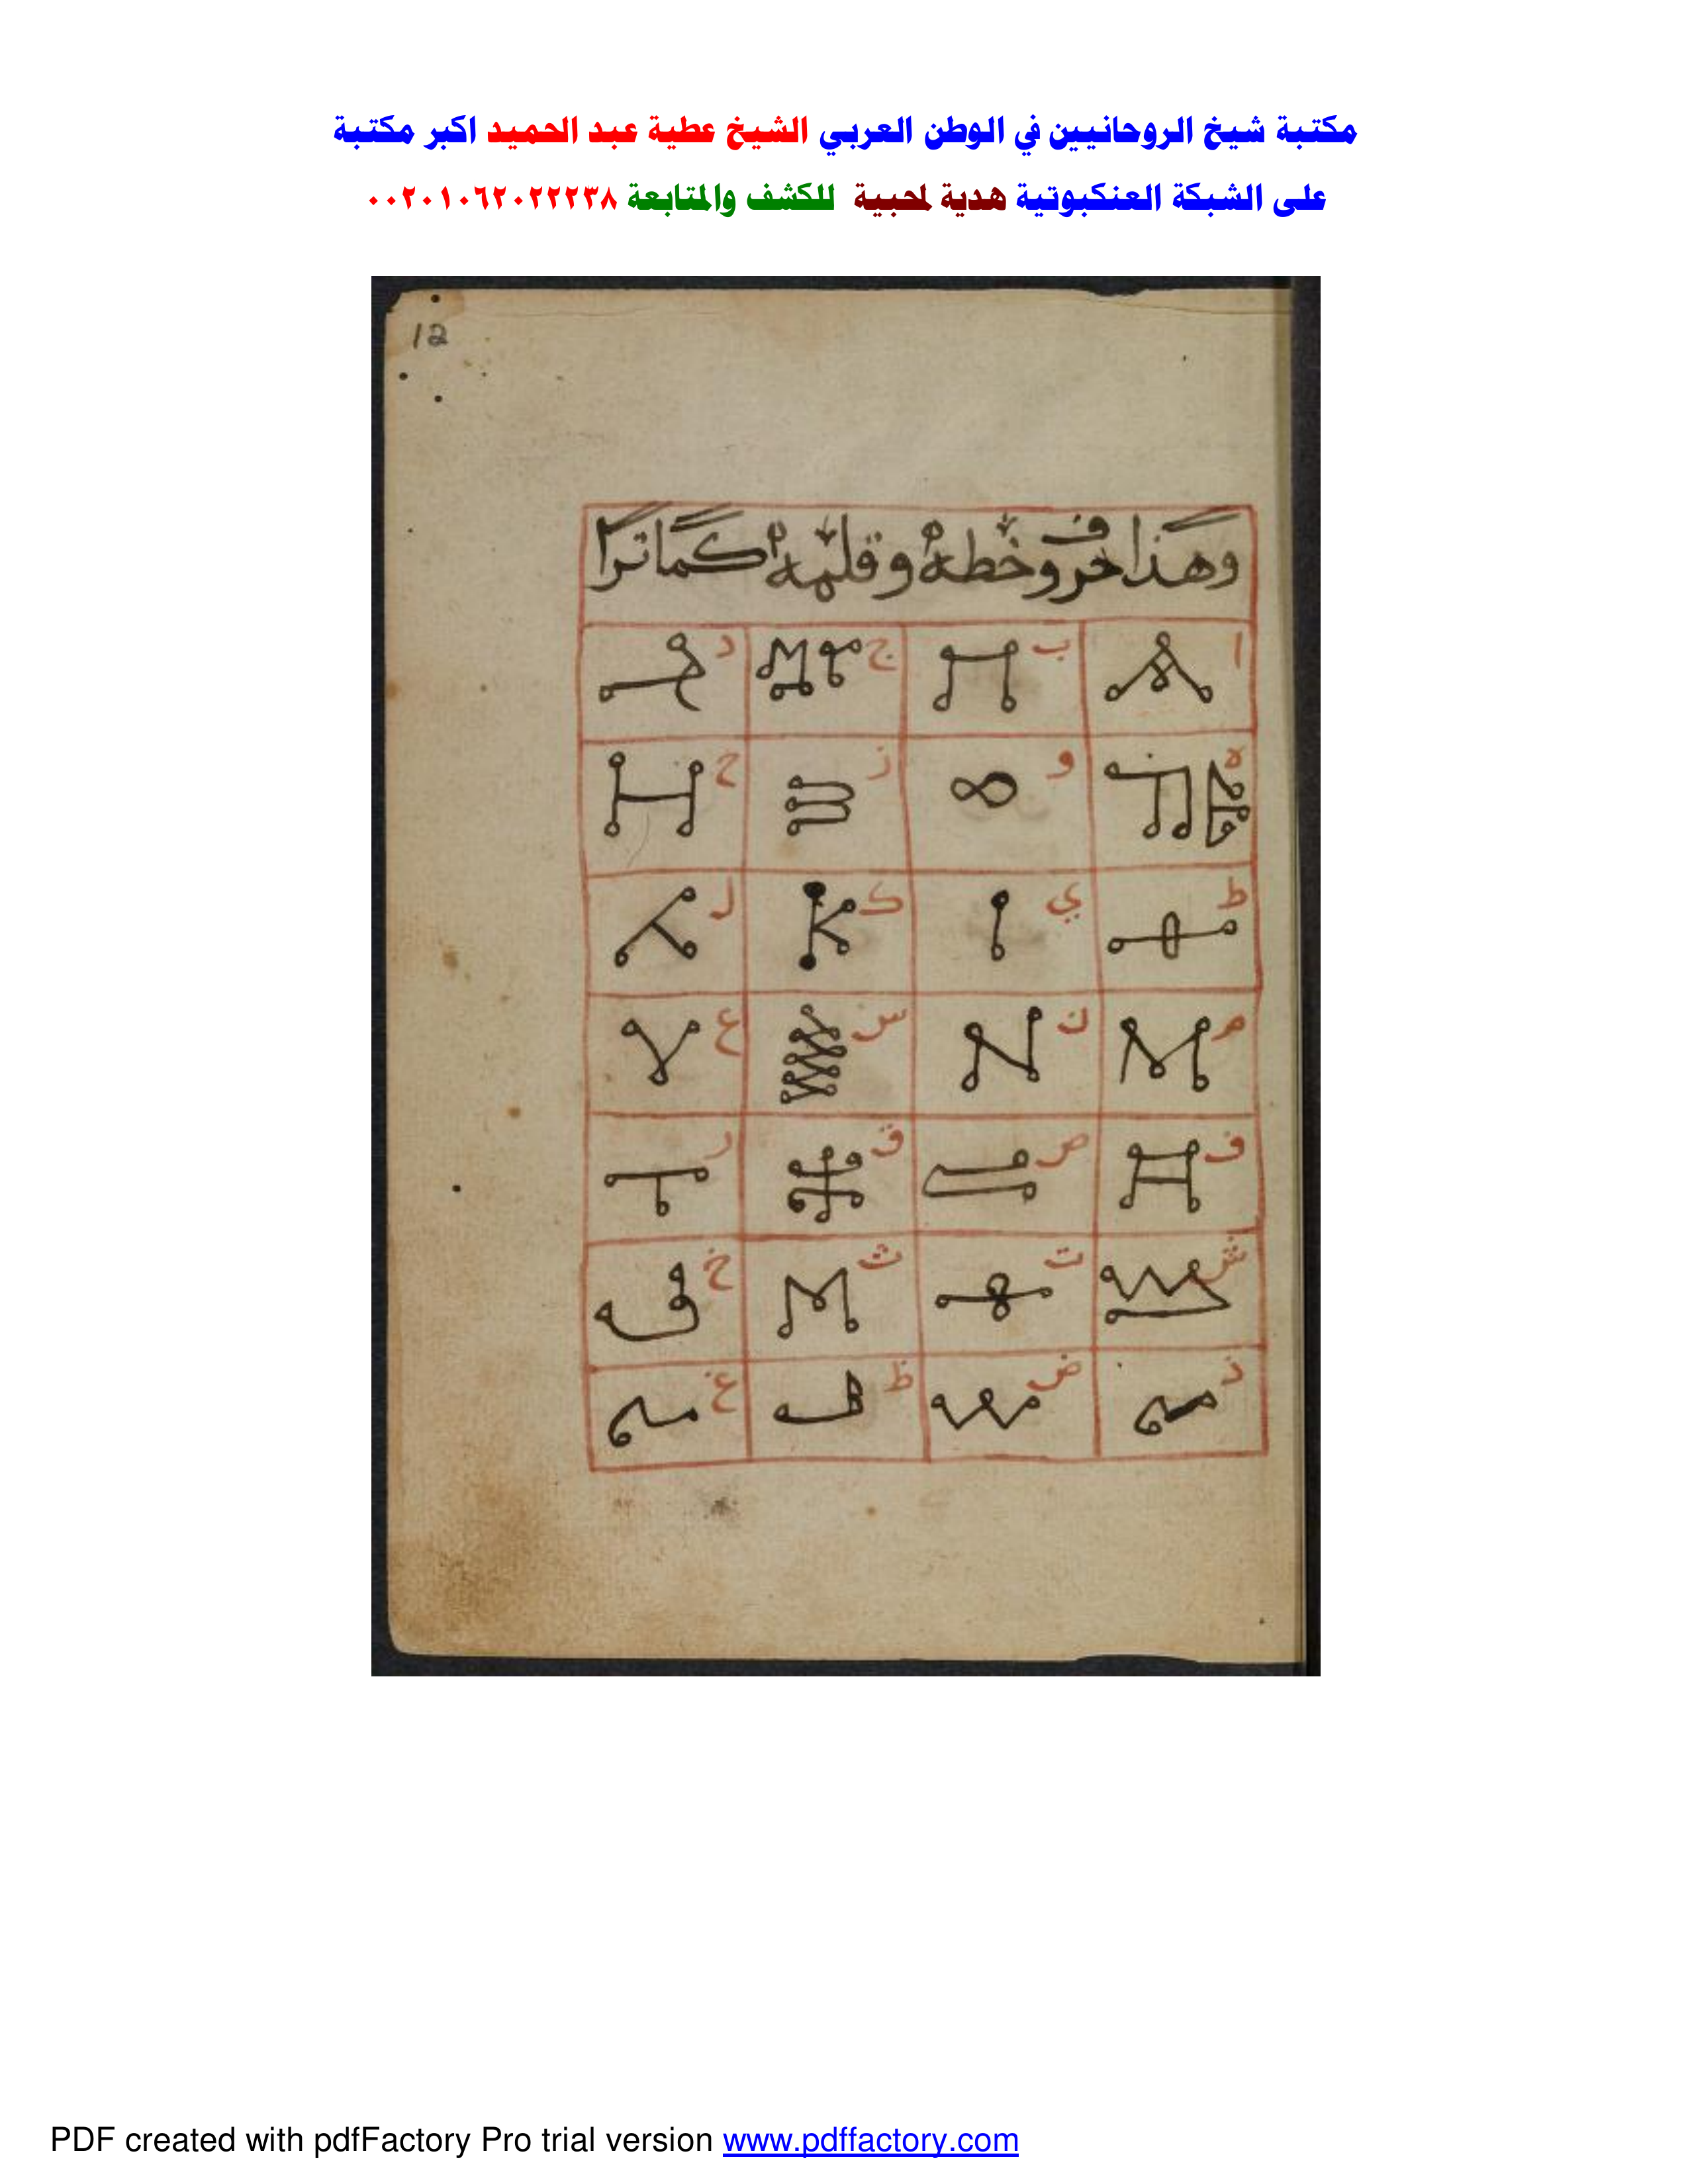 مكتبة شيخ الروحانيين في الوطن العربي الشيخ عطية عبد الحميد اكبر مكتبة
على الشبكة العنكبوتية هدية لمحبية للكشف والمتابعة ٠٠٢٠١٠٦٢٠٢٢٢٣٨
12
وهذا حروف خطه وقلمه كما ترا
ا ب ج د
ه و ز ح
ط ي ك ل
م ن س ع
ف ص ق ر
ش ت ث خ
ذ ض ظ غ
PDF created with pdfFactory Pro trial version www.pdffactory.com